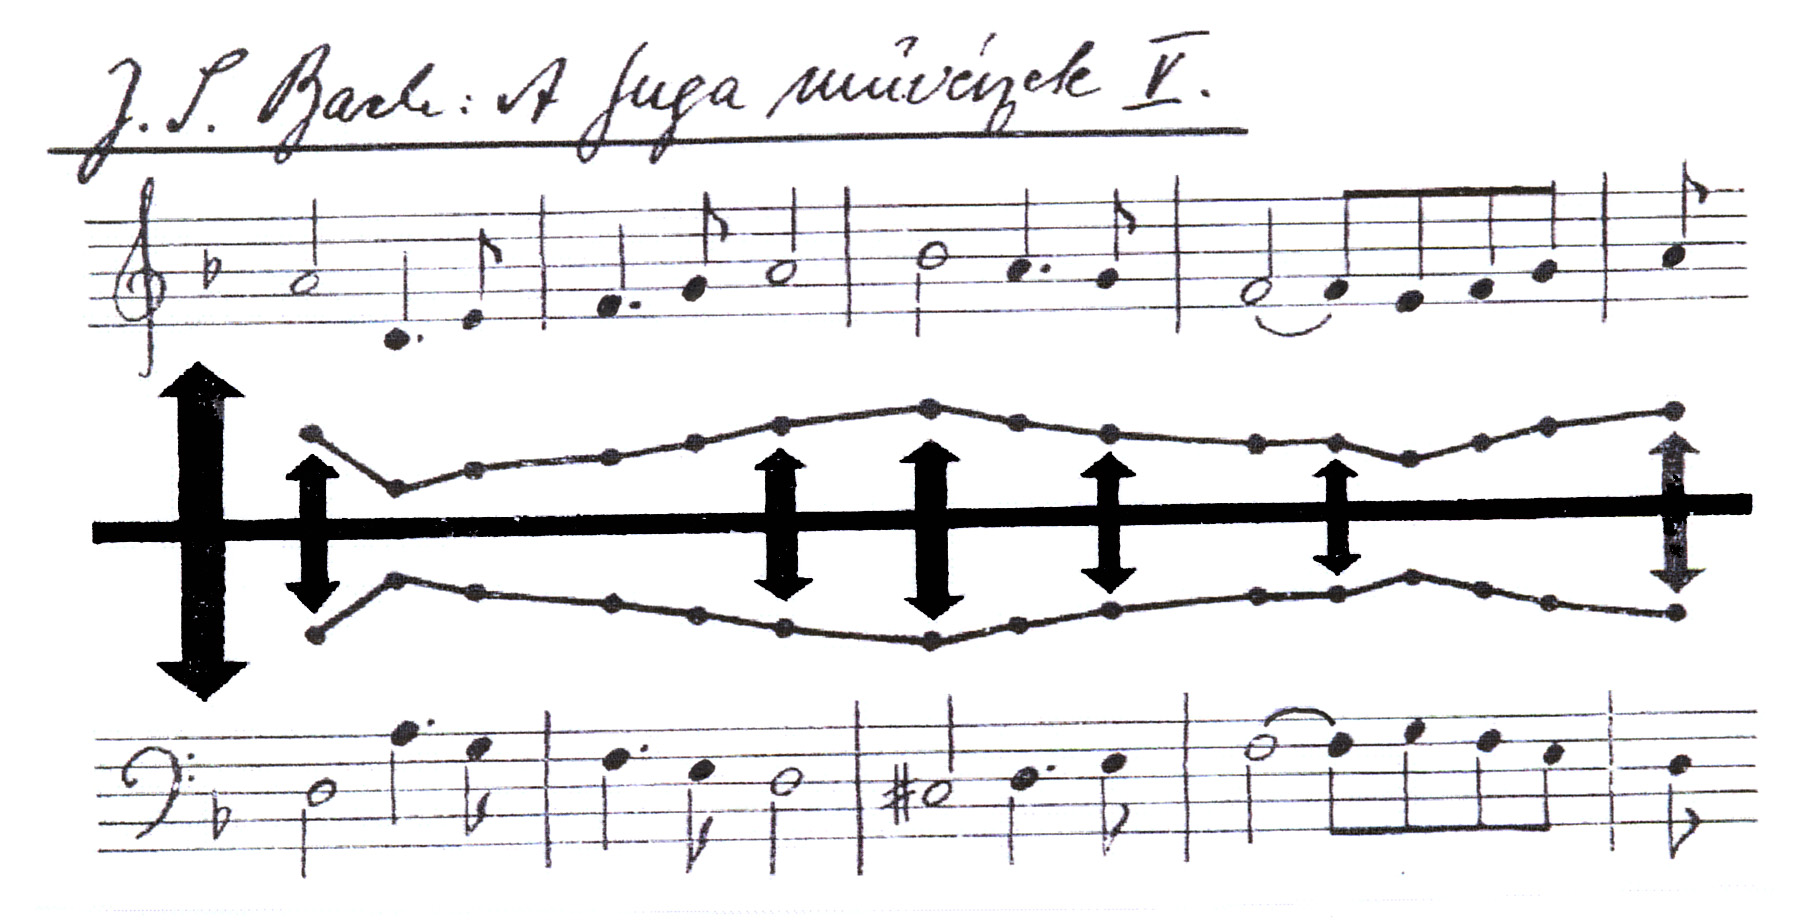 J. S. Bach: A fuga művészete V.